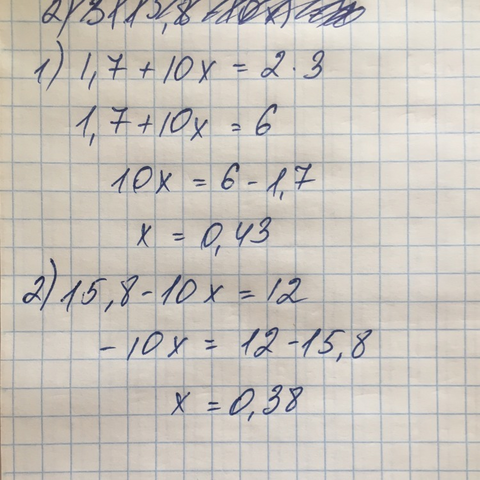 1) 1,7 + 10x = 2 · 3
1,7 + 10x = 6
10x = 6 - 1,7
x = 0,43
2) 15,8 - 10x = 12
- 10x = 12 - 15,8
x = 0,38